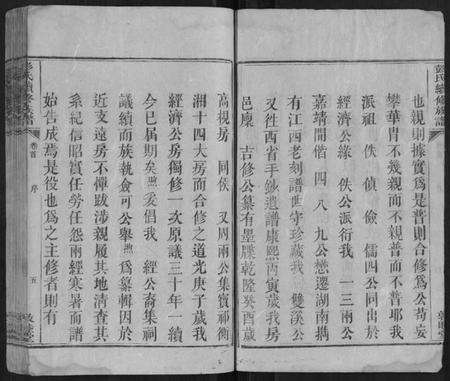 彭氏續修族譜
也親則據實爲是普則合修爲公苟妄
攀華胄不幾親而不親普而不普耶我
派祖 佚 偵 儉 儒四公同出於
經濟公緣 佚公派衍我 一三兩公
嘉靖間偕 四 八 九公懋遷湖南攜
有江西老刻譜世守珍藏我 雙溪公
又徃西省手鈔遺譜康熙丙寅歲我房
邑廩 吉修公集有墨牒乾隆癸酉歲
高梘房 同佚 又周兩公集寶祁衡
湘十四大房而合修之道光庚子歲我
經濟公房獨修一次原議三十年一續
今已届期矣熙委倡我 經公裔集祠
議續而族執僉可公舉熙爲纂輯因於
近支遠房不憚跋涉親履其地清查其
系紀信昭實任勞任怨兩經寒暑而譜
始告成焉是役也爲之主修者則有
卷首 序
五